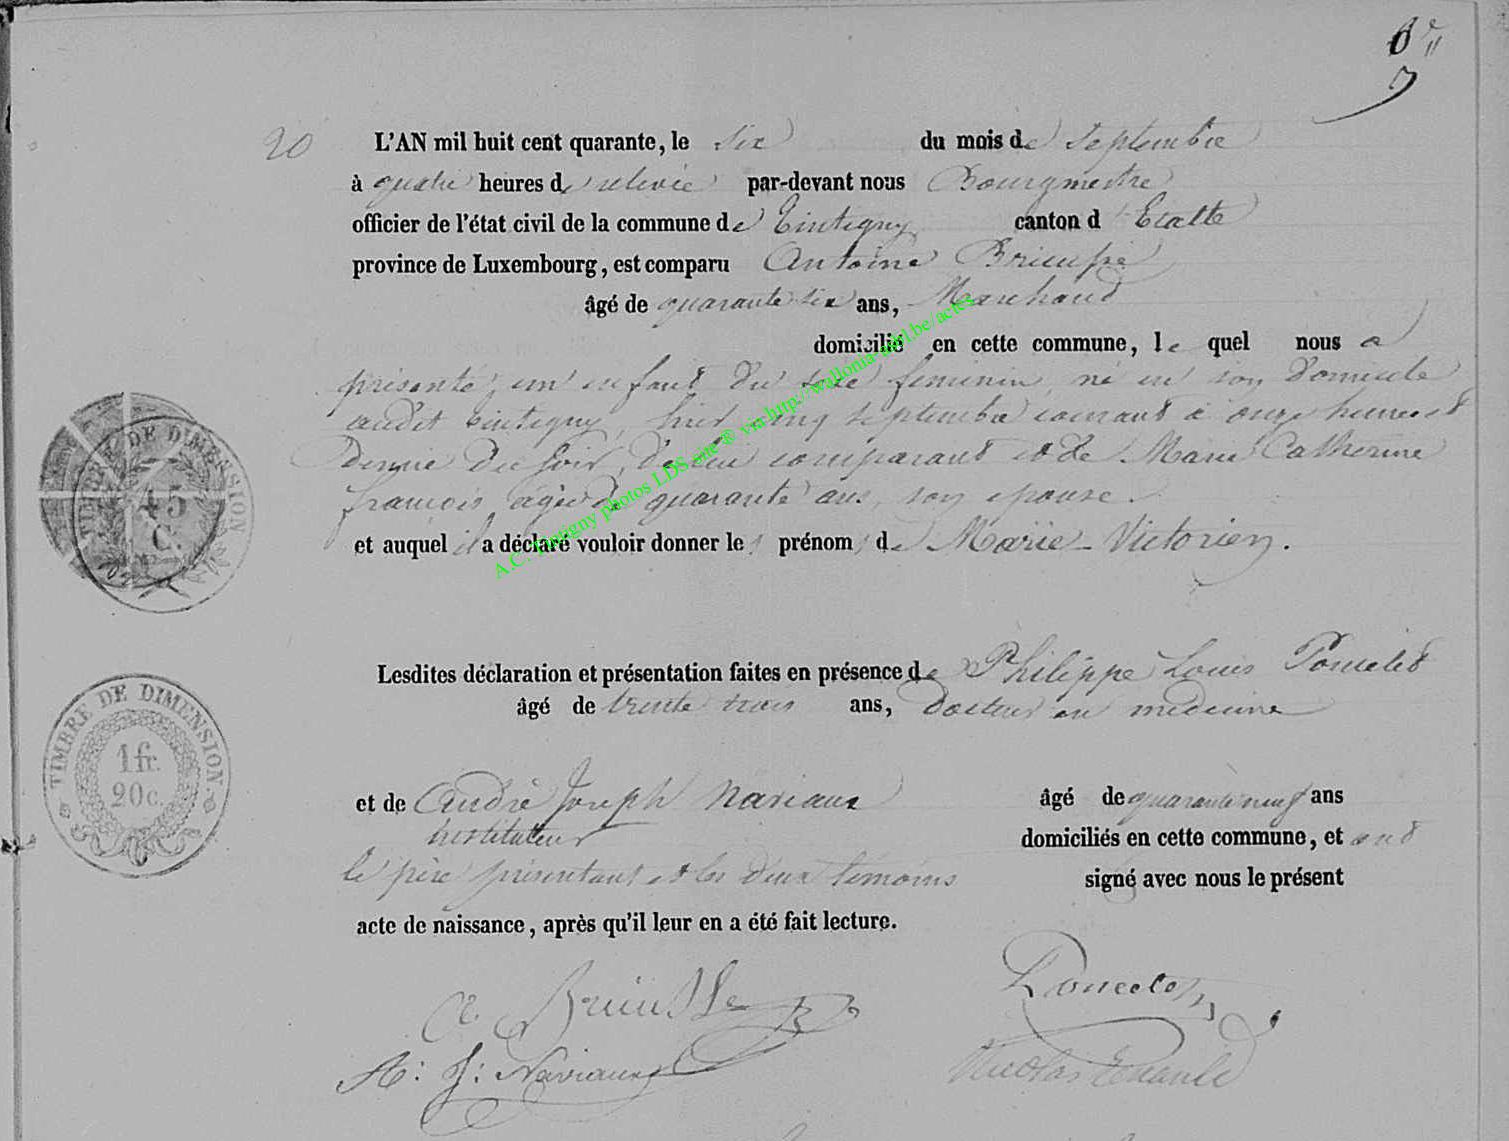 20
L'AN mil huit cent quarante, le six du mois de Septembre
à quatre heures de relevée par-devant nous Bourgmestre
officier de l'état civil de la commune de Tintigny canton d'Etalle
province de Luxembourg, est comparu Antoine
âgé de quarante six ans, Marchand
domicilié en cette commune, le quel nous a
présenté un enfant du sexe feminin né en son domicile
audit Tintigny, hier cinq septembre courant à onze heures et
demie du soir, de lui comparant et de Marie Catherine
françois agée de quarante ans, son epouse.
et auquel il a déclaré vouloir donner les prénoms de Marie-Victorien.
Lesdites déclaration et présentation faites en présence de Philippe Louis Poncelet
âgé de trente trois ans, docteur en médecine
et de André Joseph Naviaux âgé de quarante neuf ans
instituteur domiciliés en cette commune, et ont
le père présentant et les deux témoins signé avec nous le présent
acte de naissance, après qu'il leur en a été fait lecture.
Poncelet
A: J: Naviaux
TIMBRE DE DIMENSION
45 C.
TIMBRE DE DIMENSION
1 fr. 20 c.
A.C. Tintigny photos LDS site ® via http://wallonia-asbl.be/actes